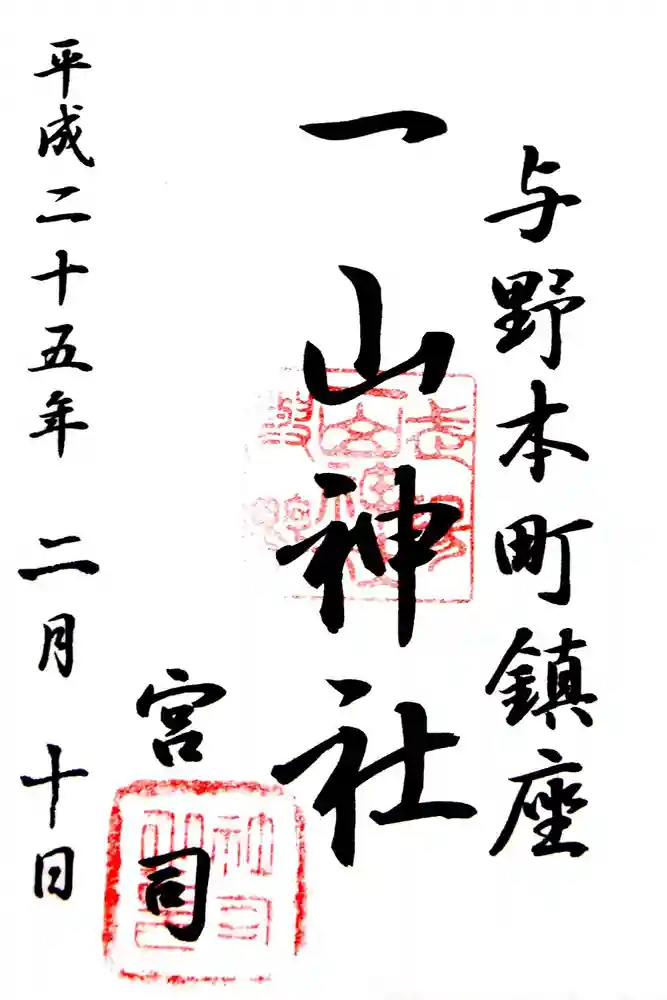 与野本町鎮座
一山神社
宮司
平成二十五年 二月 十日